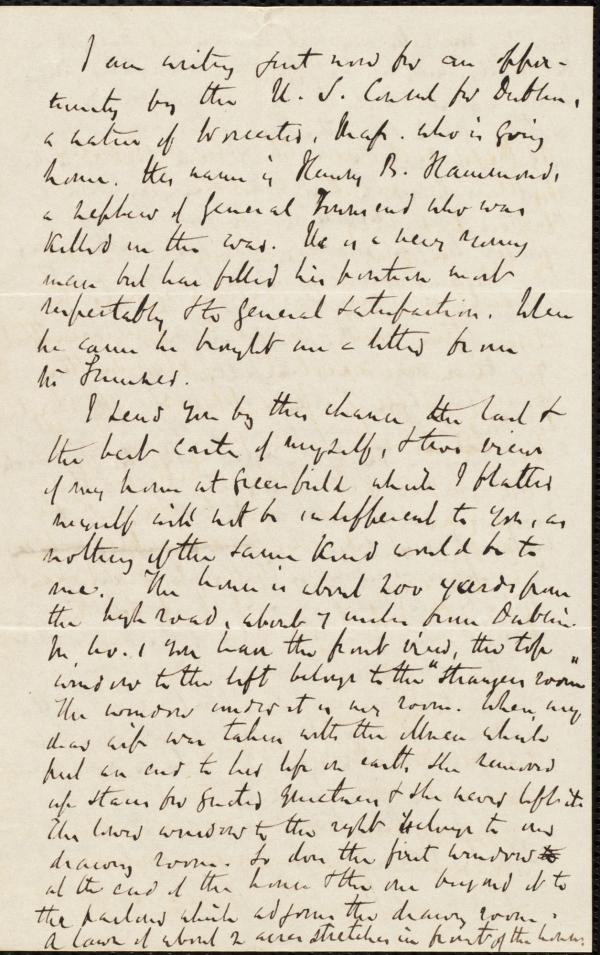 I am writing just now for an oppor-
tunity by the U. S. Consul for Dublin,
a native of Worcester, Mass. who is going
home. His name is Henry B. Hammond,
a nephew of General Townsend who was
killed in the war. He is a very young
man but has filled his position most
respectably & to general satisfaction. When
he came he brought me a letter from
Mr Sumner.
I send you by this chance the last &
the best carte of myself, & two views
of my home at Greenfield which I flatter
myself will not be indifferent to you, as
nothing of the same kind would be to
me. The house is about 200 yards from
the high road, about 7 miles from Dublin.
In no. 1 you have the front view, the top
window to the left belongs to the "Strangers room"
The window under it is my room. When my
dear wife was taken with the illness which
put an end to her life on earth she removed
up stairs for greater quietness & she never left it
The lower window to the right belongs to our
drawing room. So does the first window
at the end of the house & the one beyond it to
the parlour which adjoins the drawing room.
A lawn of about 2 acres stretches in front of the house.